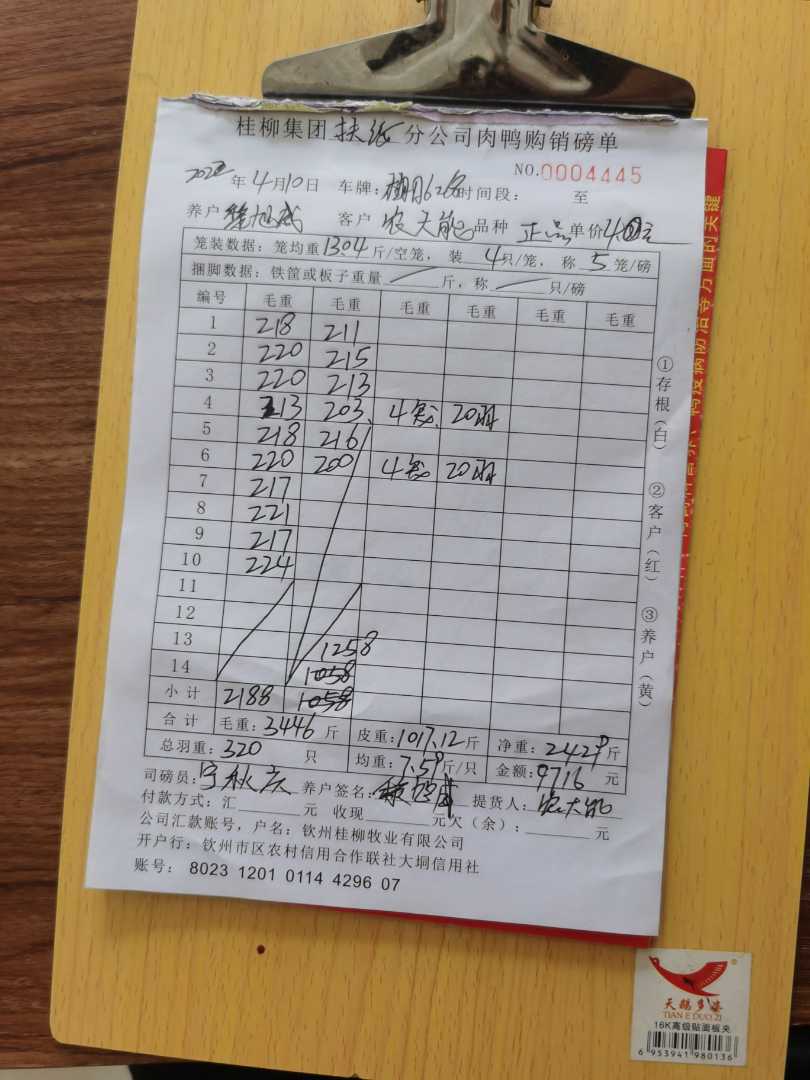 桂柳集团 扶绥 分公司肉鸭购销磅单
NO.0004445
年4月10日 车牌: 时间段: 至
养户 客户 农天能 品种 正品 单价4.0元
笼装数据:笼均重13.04斤/空笼, 装 4只/笼, 称 5笼/磅
捆脚数据:铁筐或板子重量 斤,称 只/磅
编号 毛重 毛重 毛重 毛重 毛重 毛重
1 218 211
2 220 215
3 220 213
4 213 203 4笼 20羽
5 218 216
6 220 200 4笼 20羽
7 217
8 221
9 217
10 224
11
12
13 1258
14 1058
小计 2188 1058
合计 毛重:3446斤 皮重:1017.12斤 净重:2429斤
总羽重:320 只 均重:7.59斤/只 金额:9716 元
司磅员: 养户签名: 提货人:农天能
付款方式:汇 元 收现 元欠(余): 元
公司汇款账号,户名:钦州桂柳牧业有限公司
开户行:钦州市区农村信用合作联社大垌信用社
账号: 8023 1201 0114 4296 07
①存根(白)
②客户(红)
③养户(黄)
天鹅多姿
TIAN E DUO ZI
16K高级贴面板夹
6 953941 980136